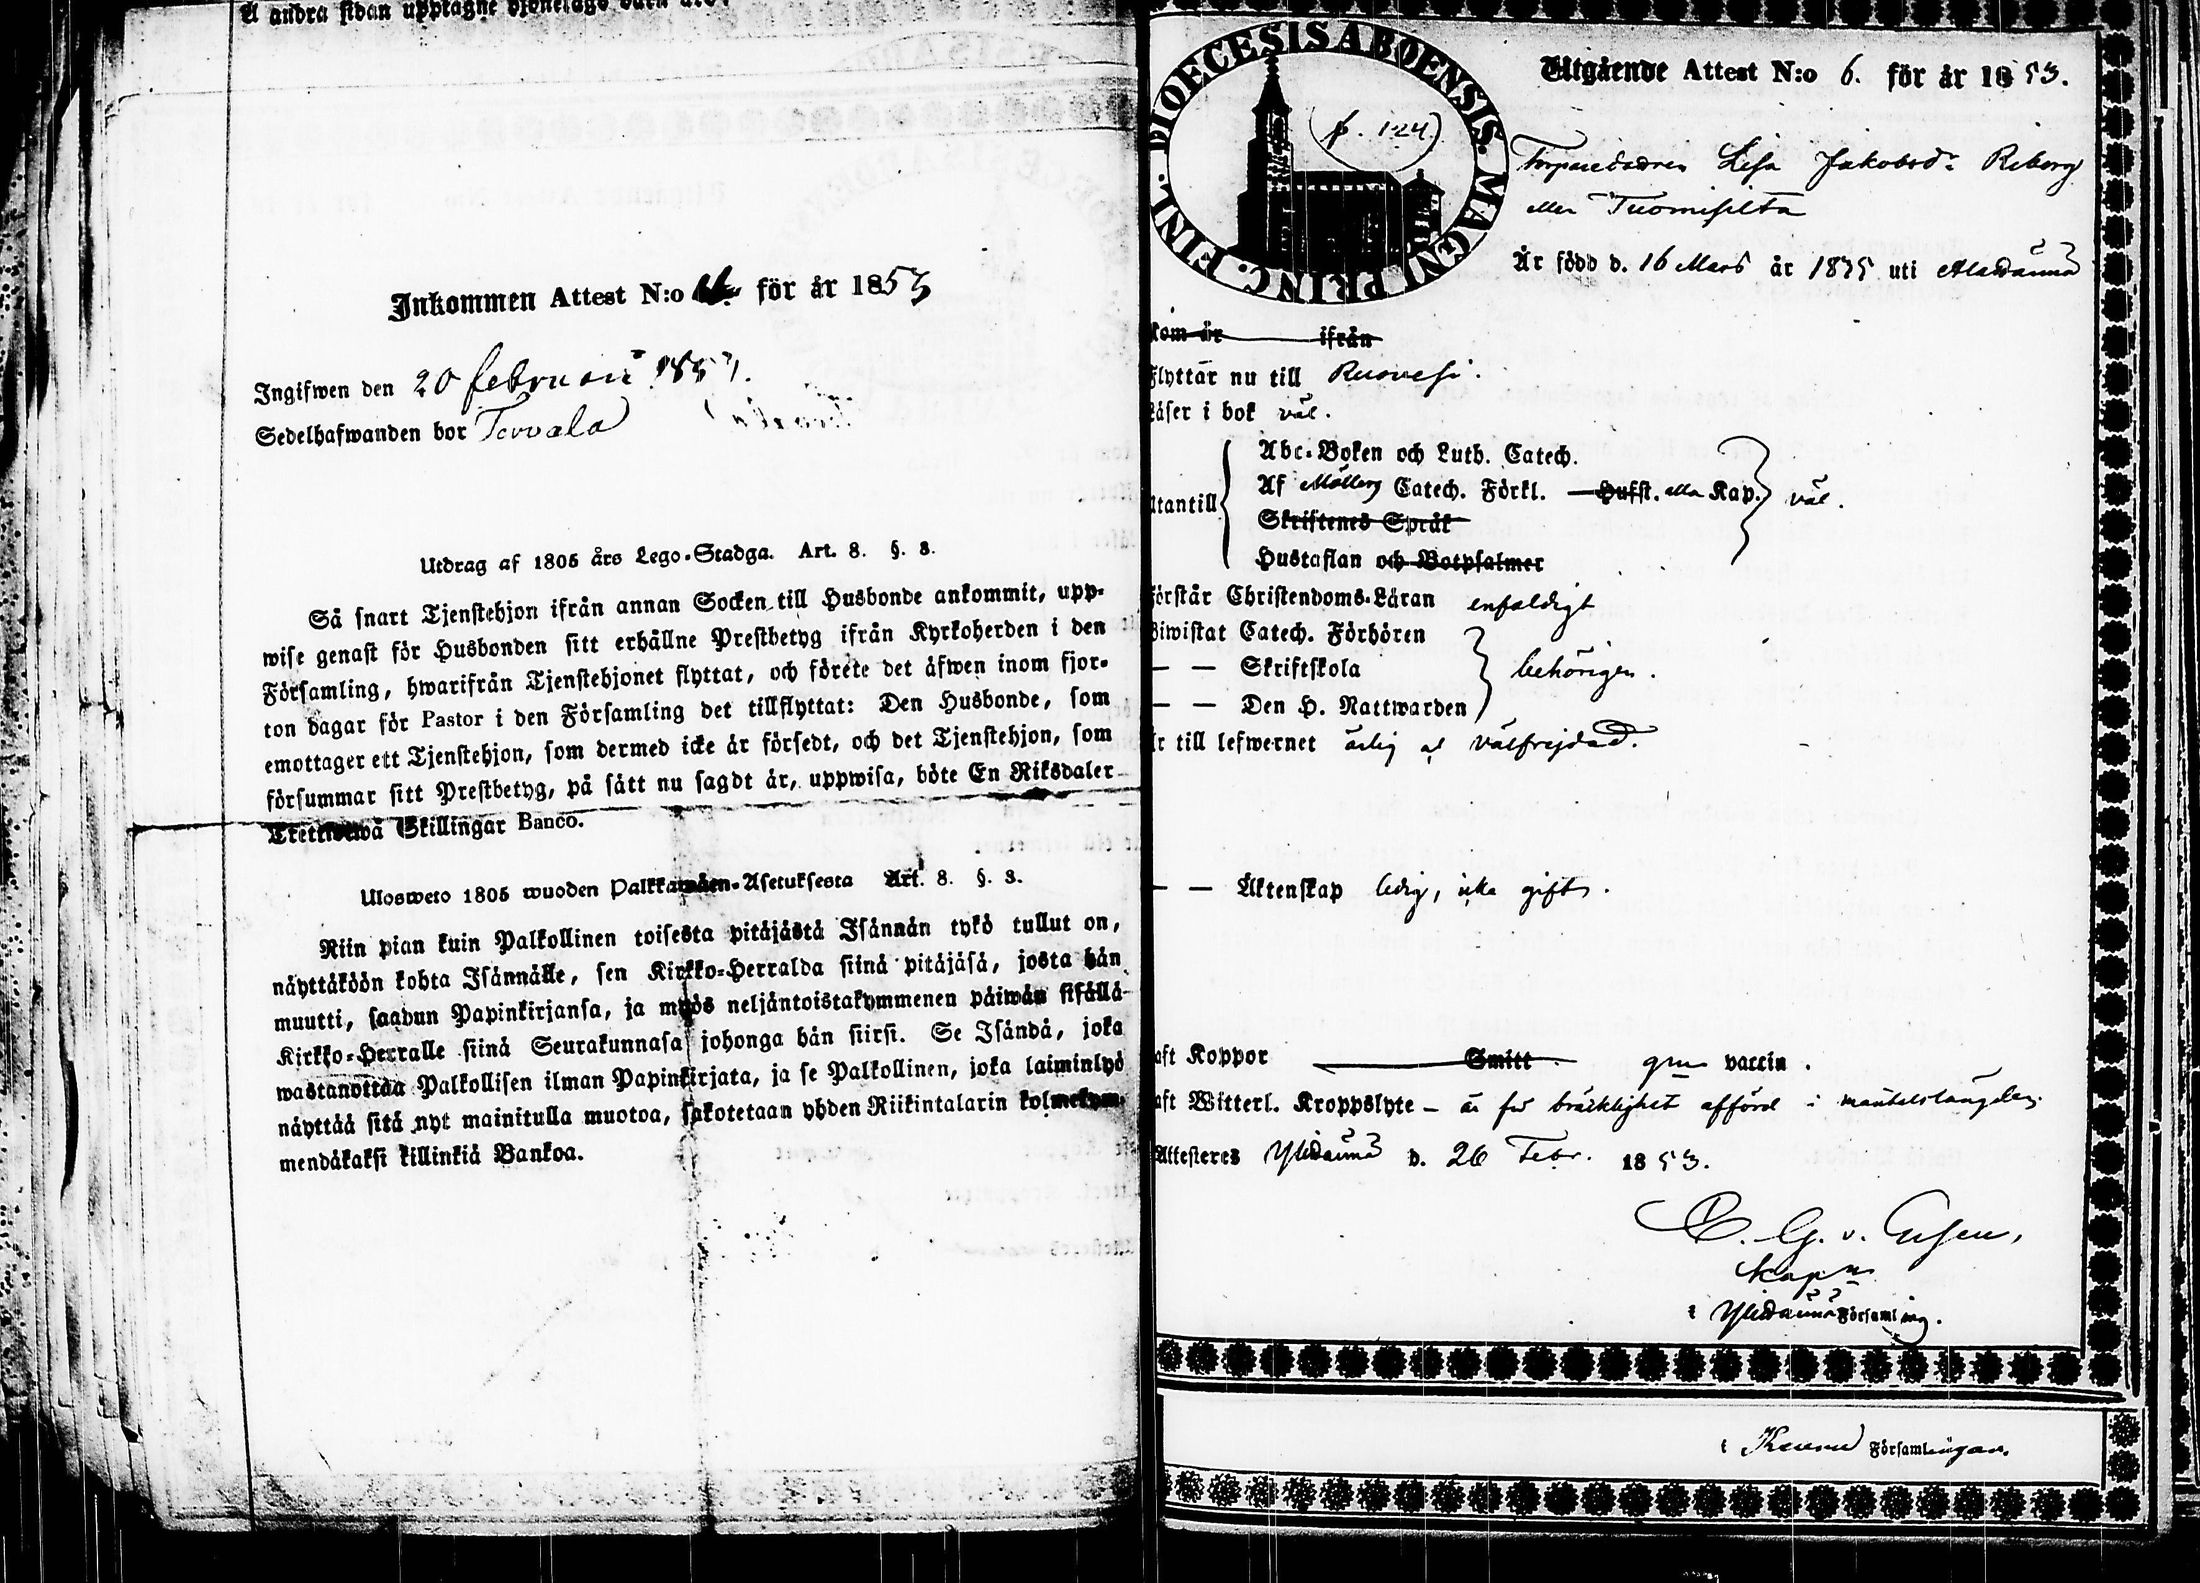 å andra sidan upptagne
Inkommen Attest N:o för år 1853
Ingifwen den 20 februari 1853.
Sedelhafwanden bor Tervala
Utdrag af 1805 års Lego-Stadga. Art. 8. §. 3.
Så snart Tjenstehjon ifrån annan Socken till Husbonde ankommit, upp-
wise genast för Husbonden sitt erhållne Prestbetyg ifrån Kyrkoherden i den
Församling, hwarifrån Tjenstehjonet flyttat, och förete det äfwen inom fjor-
ton dagar för Pastor i den Församling det tillflyttat: Den Husbonde, som
emottager ett Tjenstehjon, som dermed icke är försedt, och det Tjenstehjon, som
försummar sitt Prestbetyg, på sätt nu sagdt är, uppwisa, böte En Riksdaler
Trettiotwå Skillingar Banco.
Ulosweto 1805 wuoden Palkkawäen-Asetuksesta Art. 8. §. 3.
Niin pian kuin Palkollinen toisesta pitäjästä Isännän tykö tullut on,
näyttäköön kohta Isännälle, sen Kirkko-Herralda siinä pitäjäsä, josta hän
muutti, saadun Papinkirjansa, ja myös neljäntoistakymmenen päiwän sisällä
Kirkko-Herralle siinä Seurakunnasa johonga hän siirsi. Se Isändä, joka
wastanottaa Palkollisen ilman Papinkirjata, ja se Palkollinen, joka laiminlyö
näyttää sitä nyt mainitulla muotoa, sakotetaan yhden Riikintalarin kolmekym-
mendäkaksi killinkiä Bankoa.
DIOECESIS ABOENSIS. MAGNI PRINC. FINL.
(p. 124)
Utgående Attest N:o 6. för år 1853.
Torparedottren Lisa Jakobsd:r Riberg
eller Tuomisilta
Är född d. 16 Mars år 1835 uti Alavduna
kom år ifrån
Flyttar nu till Ruovesi.
Läser i bok väl.
Utantill
Abc-Boken och Luth. Catech.
Af Möllers Catech. Förkl. — Hufst. eller Kap. väl.
Skriftenes Språk
Hustaflan och Botpsalmer
Förstår Christendoms-Läran enfaldigt
Biwistat Catech. Förhören
— — Skriftskola behörigen.
— — Den H. Nattwarden
Är till lefwernet ärlig och välfrejdad.
— — Äktenskap ledig, icke gift.
haft Koppor Smitt gm vaccin.
haft Witterl. Kroppslyte — är för bräcklighet afförd i mantalslängden.
Attesteres d. 26 Febr. 1853.
C. G. v. Essen,
Kapn
i Församling.
i Keuru Församlingar.